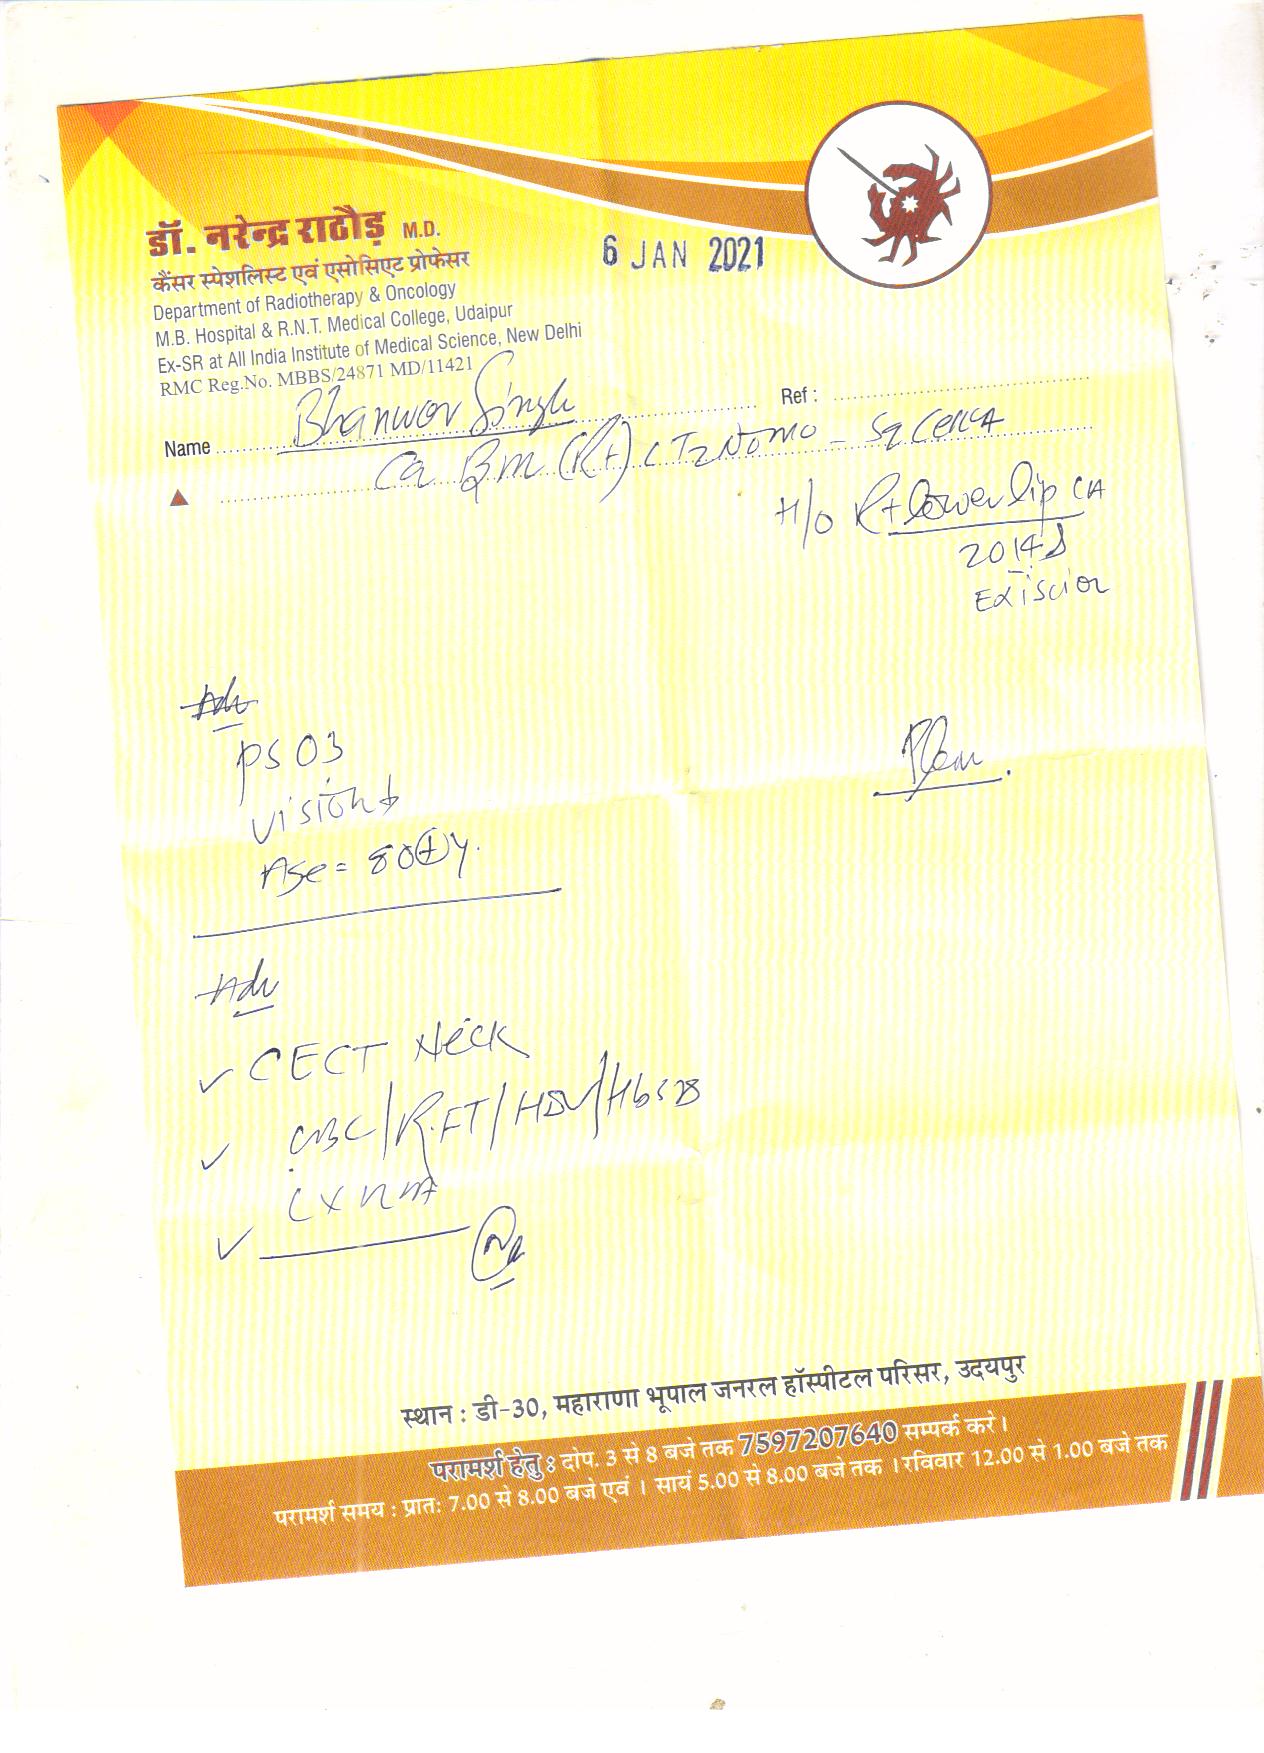 डॉ. नरेन्द्र राठौड़ M.D.
कैंसर स्पेशलिस्ट एवं एसोसिएट प्रोफेसर
6 JAN 2021
Department of Radiotherapy & Oncology
M.B. Hospital & R.N.T. Medical College, Udaipur
Ex-SR at All India Institute of Medical Science, New Delhi
RMC Reg.No. MBBS/24871 MD/11421
Name Bhanwar Singh Ref :
Ca Bm (Rt) c T2N0M0 - Sq Cell CA
H/o Rt lower lip CA
2014
Excision
Adv
PS 03
Vision
Age = 80+ y.
Plan.
Adv
CECT Neck
CBC/RFT/HIV/HbsAg
CXR
स्थान : डी-30, महाराणा भूपाल जनरल हॉस्पीटल परिसर, उदयपुर
परामर्श हेतु : दोप. 3 से 8 बजे तक 7597207640 सम्पर्क करे।
परामर्श समय : प्रातः 7.00 से 8.00 बजे एवं । सायं 5.00 से 8.00 बजे तक । रविवार 12.00 से 1.00 बजे तक